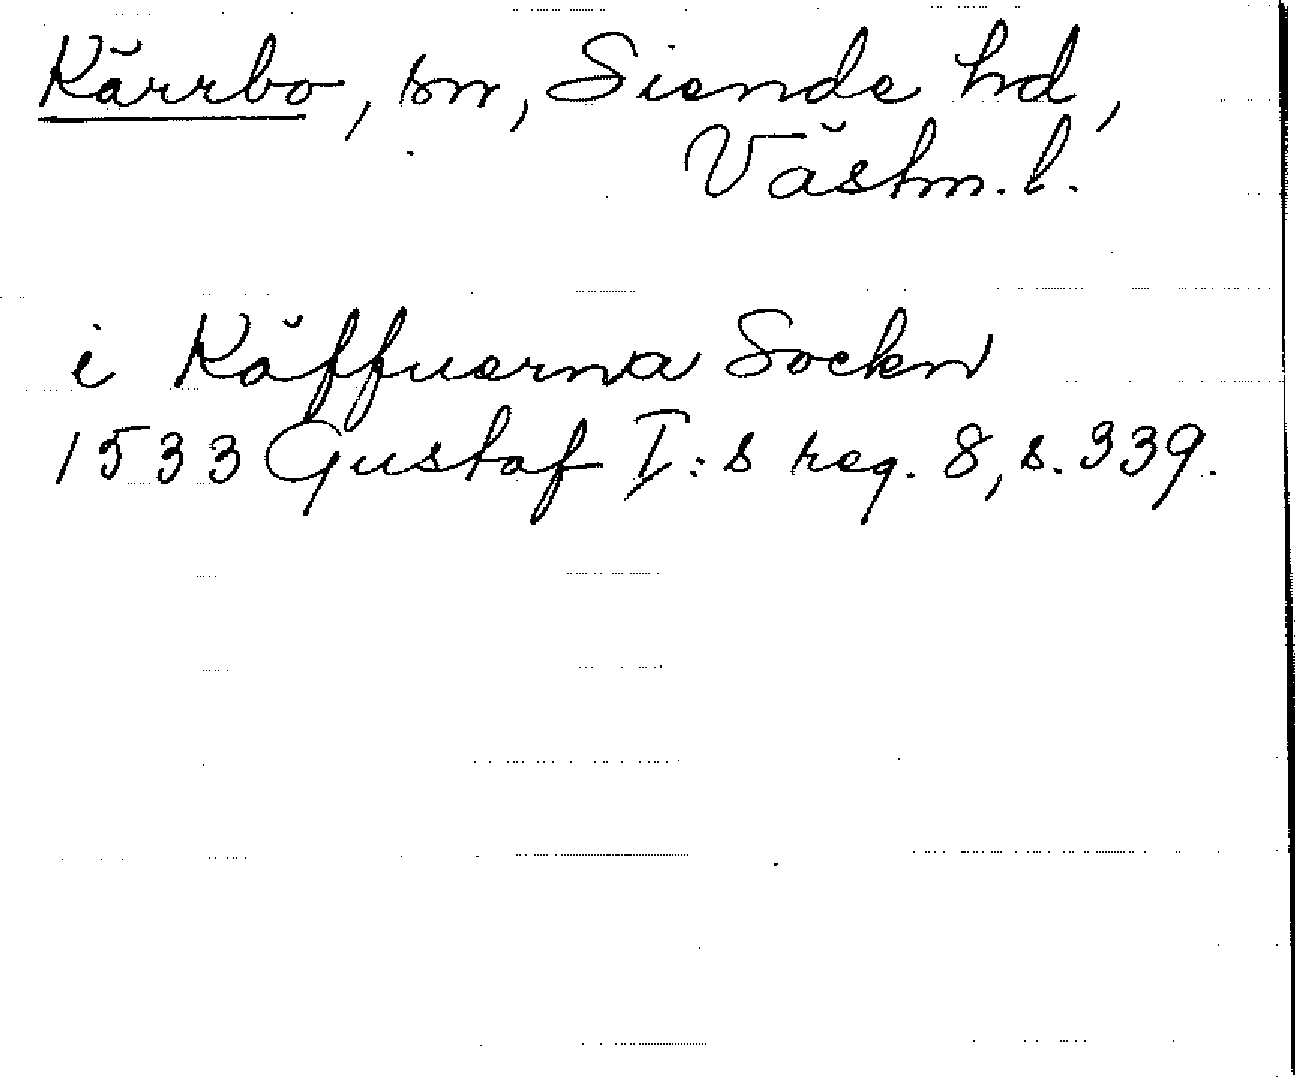 Kärrbo, sn, Siende hd,
Västm.l.
i Käffuerna Sockn
1533 Gustaf I:s reg. 8, s. 339.